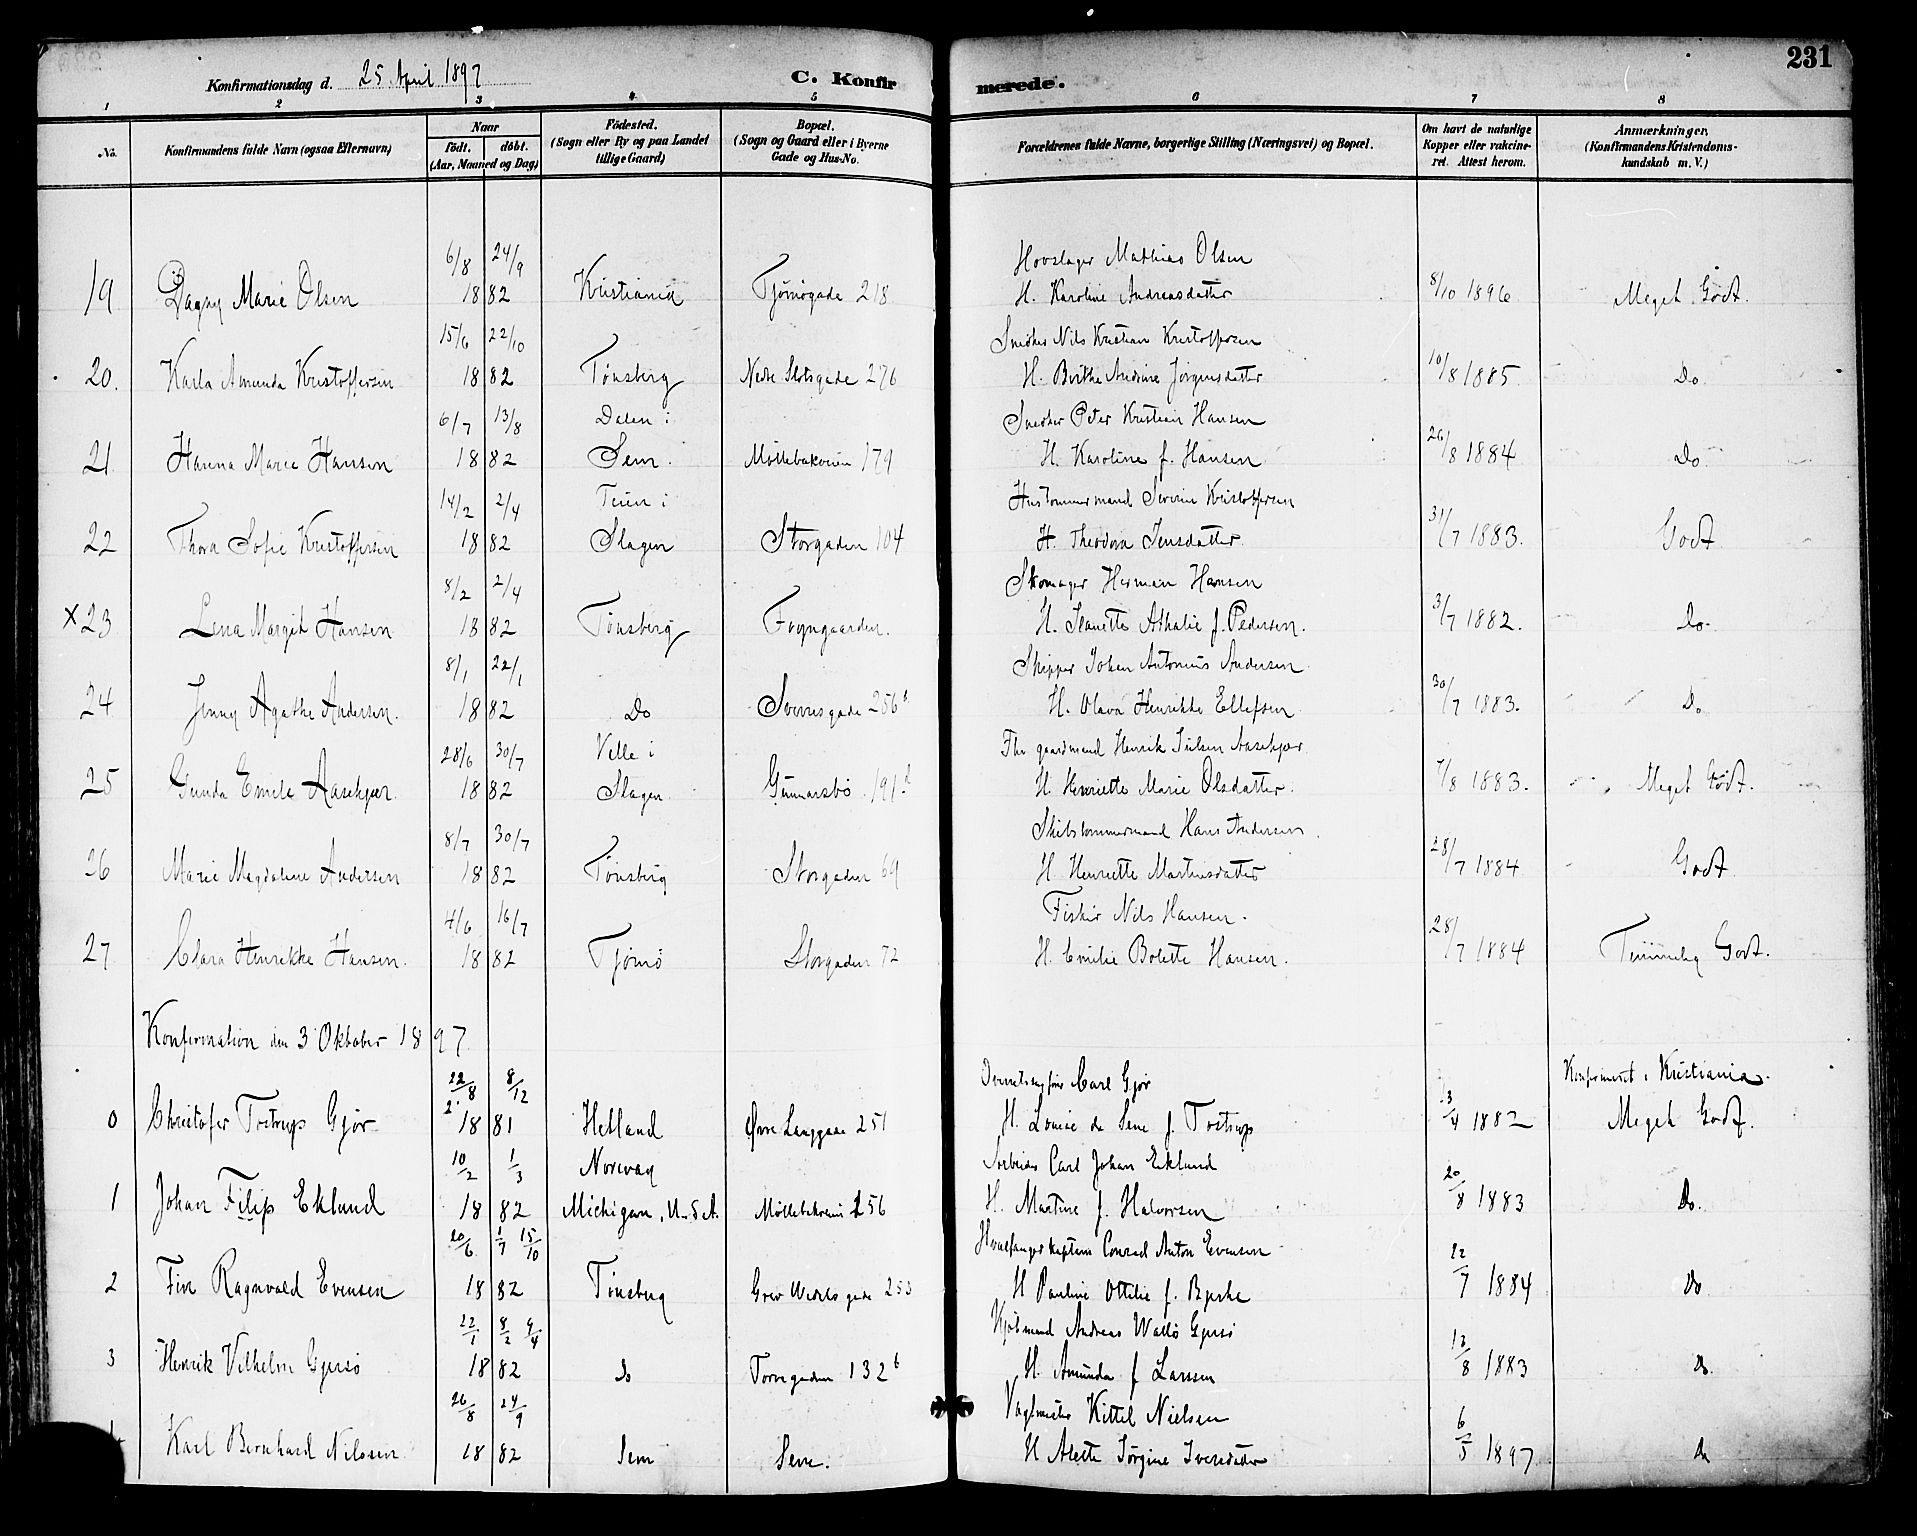 231
Konfirmationsdag d. 25. April 1897
C. Konfirmerede.
1 2 3 4 5 6 7 8
No. Konfirmandens fulde Navn (ogsaa Efternavn)
Naar født. døbt. (Aar, Maaned og Dag)
Fødested. (Sogn eller By og paa Landet tillige Gaard)
Bopæl. (Sogn og Gaard eller i Byerne Gade og Hus-No.
Forældrenes fulde Navne, borgerlige Stilling (Næringsvei) og Bopæl.
Om havt de naturlige Kopper eller vakcineret. Attest herom.
Anmærkninger. (Konfirmandens Kristendomskundskab m. V.)
6/8 24/9 Hovslager Mathias Olsen
19 Dagny Marie Olsen 1882 Kristiania Tjømøgade 218 H. Karoline Andreasdatter 8/10 1896 Meget Godt.
15/6 22/10 Snedker Nils Kristian Kristoffersen
20. Karla Amunda Kristoffersen 1882 Tønsberg Nedre Slotsgade 276 H. Birthe Andrine Jørgensdatter 10/8 1885 Do
6/7 13/8 Dalen i Snedker Peter Kristian Hansen
21 Hanna Marie Hansen 1882 Sem. Møllebakveien 179 H. Karoline f. Hansen 26/8 1884 Do
14/2 2/4 Teien i Hustømmermand Severin Kristoffersen
22 Thora Sofie Kristoffersen 1882 Slagen Storgaden 104 H. Theodora Jensdatter 31/7 1883. Godt
8/2 2/4 Skomager Herman Hansen
X 23 Lena Margit Hansen 1882 Tønsberg Fogngaarden. H. Jeanette Athalie f. Pedersen. 3/7 1882. Do.
8/1 22/1 Skipper Johan Antonius Andersen
24 Jenny Agathe Andersen. 1882 Do Sverresgade 256 H. Olava Henrikke Ellefsen 30/7 1883. Do
28/6 30/7 Velle i Fhv gaardmand Henrik Julsen Aasekjær
25 Gunda Emile Aasekjær. 1882 Slagen Gunnarsbø 191 H. Henriette Marie Olsdatter. 7/8 1883. Meget Godt.
8/7 30/7 Skibstømmermand Hans Andersen.
26 Marie Magdalene Andersen 1882 Tønsberg Storgaden 69 H. Henriette Martinsdatter 28/7 1884 Godt
4/6 16/7 Fisker Nils Hansen.
27 Clara Henrikke Hansen. 1882 Tjømø Storgaden 72 H. Emilie Bolette Hansen. 28/7 1884 Temmelig Godt.
Konfirmation den 3 Oktober 1897
22/8 8/12 Carl Gjør Konfirmeret i Kristiania.
0 Christofer Tostrup Gjør 1881 Hetland Øvre Langgade 251 H. Louise de Seue f. Tostrup 13/4 1882 Meget Godt.
10/2 1/3 Norway Carl Johan Eklund
1 Johan Filip Eklund 1882 Michigan, U.S.A. 256 H. Martine f. Halvorsen 20/8 1883 Do.
20/6 1/7 15/10 Hvalfangerkaptein Conrad Anton Evensen
2 Fin Ragnvald Evensen 1882 Tønsberg Grev Wedels gade 253 H Pauline Ottilie f. 22/7 1884 Do
22/1 8/2 9/4 Kjøbmand Andreas Wallø Gjersø
3 Henrik Vilhelm Gjersø 1882 Do Torvegaden 132 b H. Amunda f Larssen 13/8 1883 Do.
26/8 24/9 Vagtmester Kittel Nielsen
Karl Bernhard Nilssen 1882 Sem Sem. H Alette Jørgine Iversdatter 6/5 1897 Do